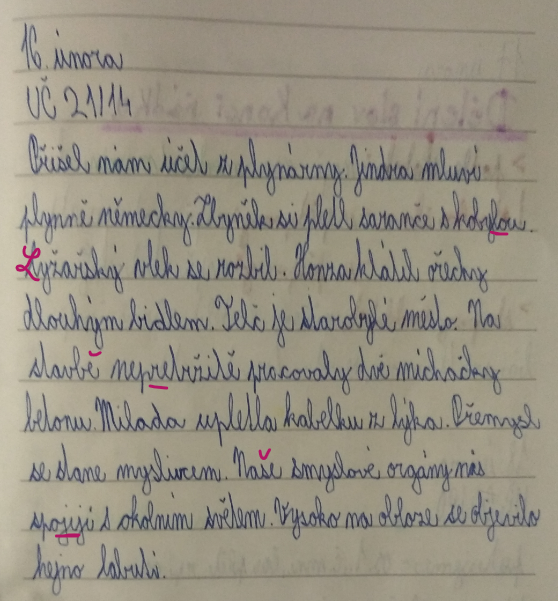 16. února
UČ 21/14
Přišel nám účet z plynárny. Jindra mluví
plynně německy. Zbyněk si pletl saranče s kobylou.
Lyžařský vlek se rozbil. Honza klátil ořechy
dlouhým bidlem. Telč je starobylé město. Na
stavbě nepretržitě pracovaly dvě míchačky
betonu. Milada upletla kabelku z lýka. Přemysl
se stane myslivcem. Naše smyslové orgány nás
spojijí s okolním světem. Vysoko na obloze se objevilo
hejno labutí.